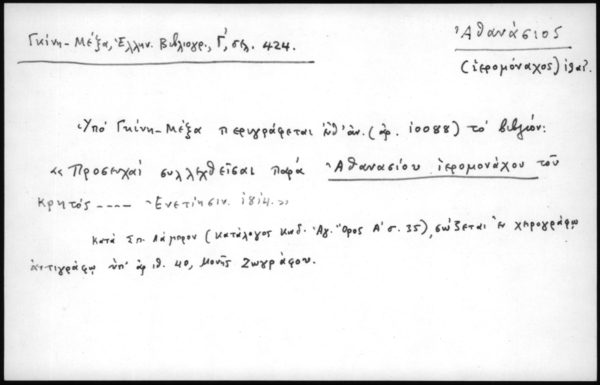 Γκίνη-Μέξα, Ἑλλην. Βιβλιογρ., Γ΄, σελ. 424.
Ἀθανάσιος
(ἱερομόναχος)
Ὑπό Γκίνη-Μέξα περιγράφεται (ἀρ. 10088) τό βιβλίον:
«Προσευχαί συλλεχθεῖσαι παρά Ἀθανασίου ἱερομονάχου τοῦ
Κρητός ---- Ἐνετίησιν. 1814.»
Κατά Σπ. Λάμπρον (Κατάλογος Κωδ. Ἁγ. Ὄρος Α΄ σ. 35), σώζεται ἐν χειρογράφῳ
ἀντιγράφῳ ὑπ' ἀριθ. 40, Μονῆς Ζωγράφου.